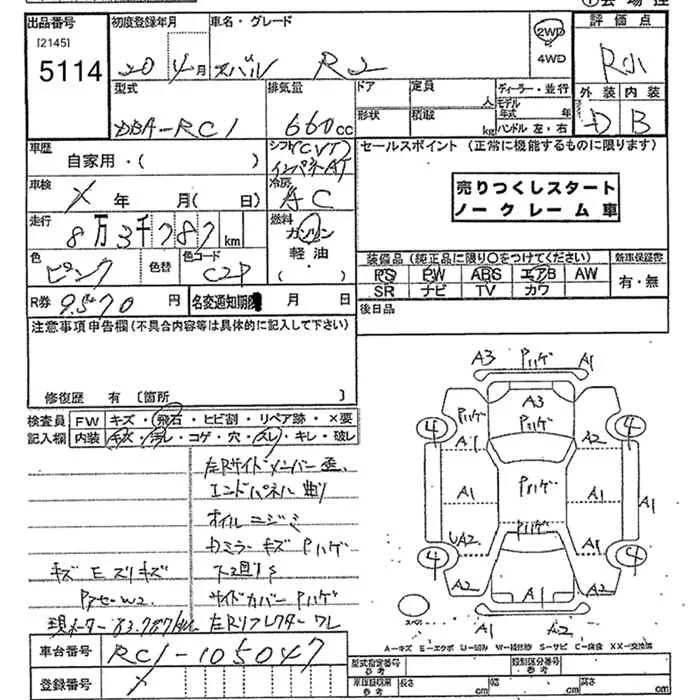 出品番号 初度登録年月 車名・グレード 評価点
[2145] 5114 20年4月 スバル R2 2WD 4WD R小
外装 内装
D B
型式 排気量 ドア 定員 ディーラー・並行
人 モデル年式 年
DBA-RC1 660cc 形状 積載 kg ハンドル 左・右
車歴 シフト CVT セールスポイント (正常に機能するものに限ります)
自家用・( ) インパネAT
車検 冷房
年 月(日) AC
売りつくしスタート
ノークレーム車
走行 燃料
8万3千787km ガソリン
軽油
・( )
色 色替 色コード
ピンク C2P
装備品 (純正品に限り○をつけてください) 新車保証書
PS PW ABS エアB AW 有・無
SR ナビ TV カワ
R券 9570円 名変通知期限 月 日 後日品
注意事項申告欄(不具合内容等は具体的に記入して下さい)
修復歴 有 [箇所 ]
検査員 FW キズ・飛石・ヒビ割・リペア跡・×要
記入欄 内装 キズ・汚レ・コゲ・穴・スレ・キレ・破レ
左Rサイドメンバー歪、
エンドパネル曲り
オイルニジミ
カミラーキズ Pハゲ
キズ E ズリキズ 下廻りS
PアセーW2 サイドカバーPハゲ
現メーター83.787km 左Rリフレクターワレ
車台番号 RC1-105047
登録番号
A3 Pハゲ A1
A3
Pハゲ Pハゲ
4 4
A1 A2
A1 Pハゲ A1 A1
Pハゲ
UA2 A1
4 4
A2 A1 A2
スペア
A1 A2
A-キズ E-エクボ U-凹み W-補修跡 S-サビ C-腐食 XX-交換済
型式指定番号 参考 類別区分番号 参考
車庫証明用 参考 長さ cm 幅 cm 高さ cm